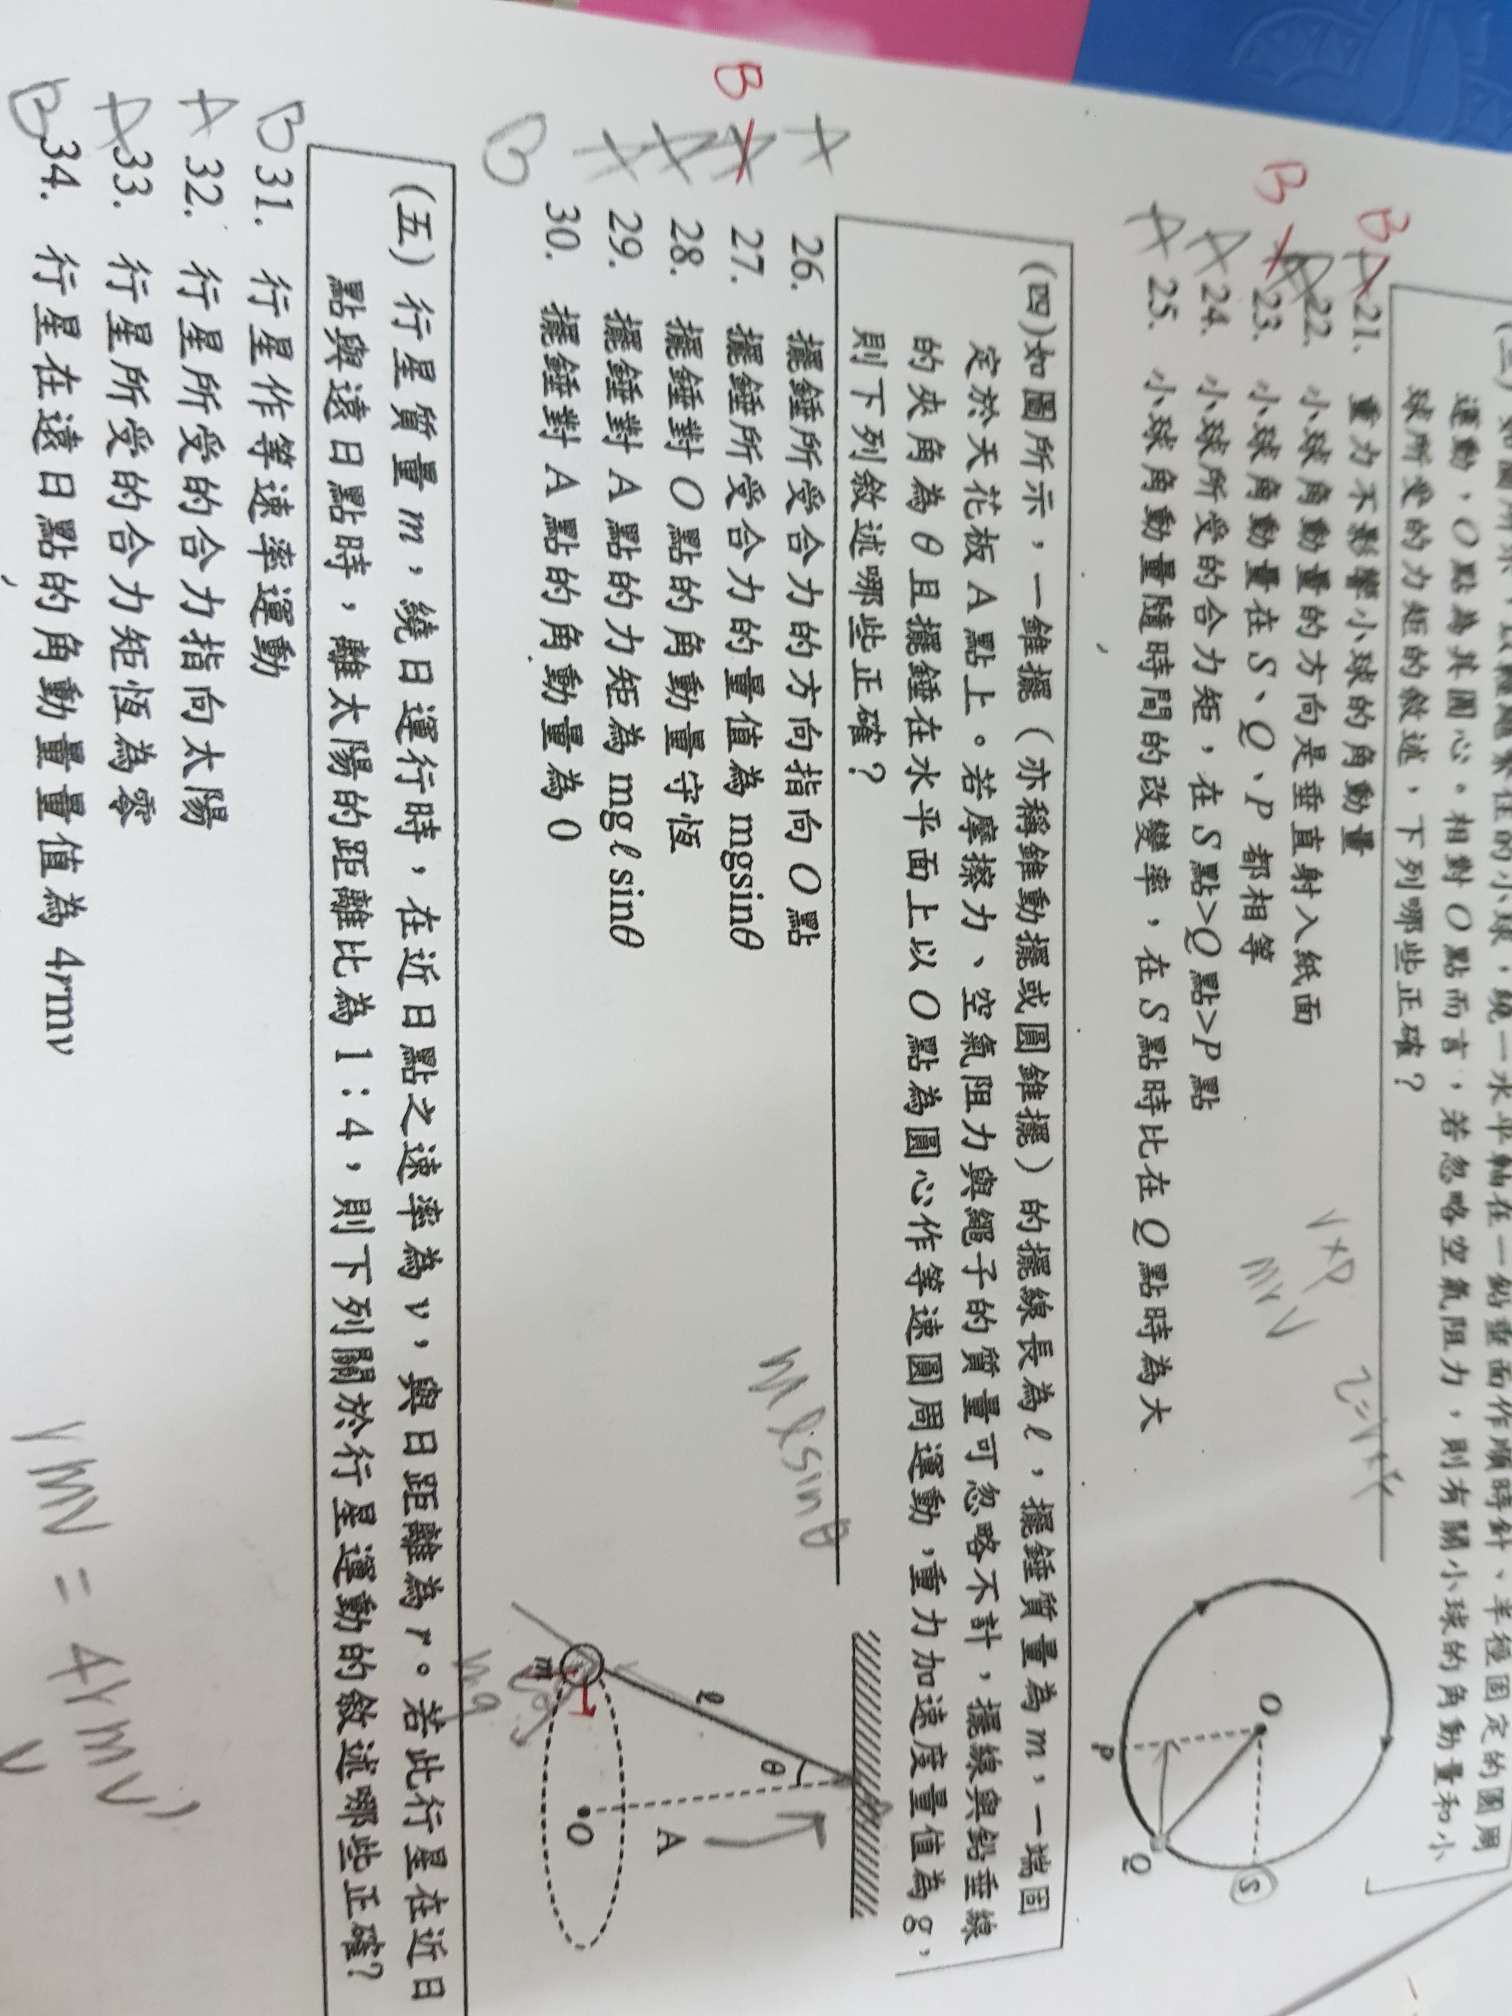 運動，O點為其圓心。相對O點而言，若忽略空氣阻力，則有關小球的角動量和小
球所受的力矩的敘述，下列哪些正確？
B A 21. 重力不影響小球的角動量
A 22. 小球角動量的方向是垂直射入紙面
B A 23. 小球角動量在S、Q、P都相等
A 24. 小球所受的合力矩，在S點>Q點>P點
A 25. 小球角動量隨時間的改變率，在S點時比在Q點時為大
mrv
O
P
Q
S
(四)如圖所示，一錐擺（亦稱錐動擺或圓錐擺）的擺線長為ℓ，擺錘質量為m，一端固
定於天花板A點上。若摩擦力、空氣阻力與繩子的質量可忽略不計，擺線與鉛垂線
的夾角為θ且擺錘在水平面上以O點為圓心作等速圓周運動，重力加速度量值為g，
則下列敘述哪些正確？
A 26. 擺錘所受合力的方向指向O點
B A 27. 擺錘所受合力的量值為mgsinθ
A 28. 擺錘對O點的角動量守恆
A 29. 擺錘對A點的力矩為mgℓsinθ
B 30. 擺錘對A點的角動量為0
mℓsinθ
θ
ℓ
A
m
O
mg
(五)行星質量m，繞日運行時，在近日點之速率為v，與日距離為r。若此行星在近日
點與遠日點時，離太陽的距離比為1：4，則下列關於行星運動的敘述哪些正確？
B 31. 行星作等速率運動
A 32. 行星所受的合力指向太陽
A 33. 行星所受的合力矩恆為零
B 34. 行星在遠日點的角動量量值為4rmv
rmv = 4rmv'